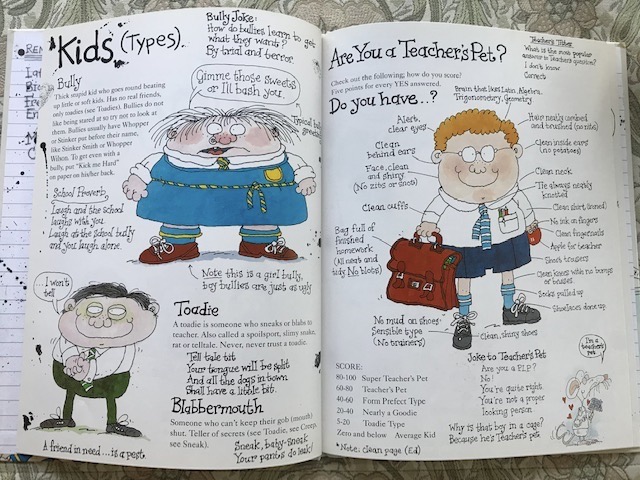 Kids (Types).
Bully Joke:
How do bullies learn to get
what they want?
By trial and terror.
Bully
Thick stupid kid who goes round beating
up little or soft kids. Has no real friends,
only toadies (see Toadies). Bullies do not
like being stared at so try not to look at
them. Bullies usually have Whopper
or Stinker put before their name,
like Stinker Smith or Whopper
Wilson. To get even with a
bully, put "Kick me Hard"
on paper on his/her back.
Gimme those sweets
or I'll bash you.
Typical bully
School Proverb
Laugh and the school
laughs with you.
Laugh at the school bully
and you laugh alone.
Note this is a girl bully,
boy bullies are just as ugly
...I won't
tell
Toadie
A toadie is someone who sneaks or blabs to
teacher. Also called a spoilsport, slimy snake,
rat or telltale. Never, never trust a toadie.
Tell tale tit
Your tongue will be split
And all the dogs in town
Shall have a little bit.
Blabbermouth
Someone who can't keep their gob (mouth)
shut. Teller of secrets (see Toadie, Creep,
see Sneak).
Sneak, baby-sneak
Your pants do leak!
A friend in need...is a pest.
Are You a Teacher's Pet?
Check out the following; how do you score?
Five points for every YES answered.
Do you have..?
Teacher's Titter
What is the most popular
answer to Teacher's question?
I don't know
Correct
Brain that likes Latin, Algebra,
Trigonometry, Geometry
Alert,
clear eyes
Clean
behind ears
Face, clean
and shiny
(No zits or snot)
Clean cuffs
Bag full of
finished
homework
(All neat and
tidy No blots)
No mud on shoes
Sensible type
(No trainers)
Hair neatly combed
and brushed (no nits)
Clean inside ears
(no potatoes)
Clean neck
Tie always neatly
knotted
Clean shirt (ironed)
No ink on fingers
Clean fingernails
Apple for teacher
Short trousers
Clean knees with no bumps
or bruises.
Socks pulled up
Shoelaces done up
Clean, shiny shoes
SCORE:
80-100 Super Teacher's Pet
60-80 Teacher's Pet
40-60 Form Prefect Type
20-40 Nearly a Goodie
5-20 Toadie Type
Zero and below Average Kid
*Note: clean page (Ed)
Joke to Teacher's Pet
Are you a P.L.P?
No!
You're quite right
You're not a proper
looking person
Why is that boy in a cage?
Because he's Teacher's pet.
I'm a
teacher's
pet